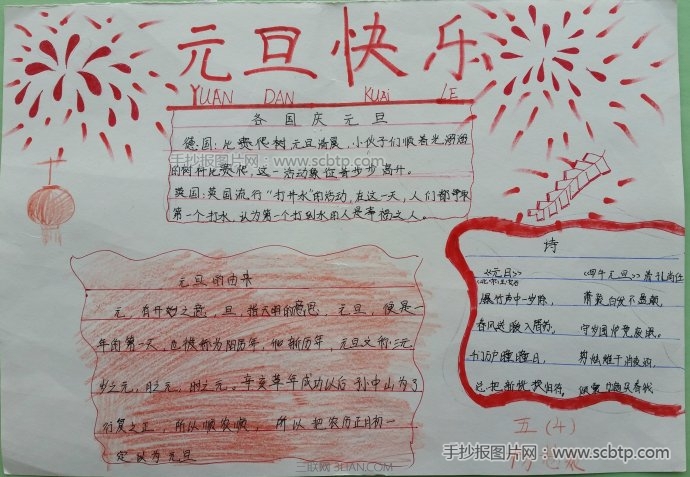 元旦快乐
YUAN DAN KUAi LE
各国庆元旦
德国:比赛爬树元旦清晨,小伙子们顺着光溜溜
的树杆比赛爬,这一活动象征着步步高升。
英国:英国流行“打井水”的活动,在这一天,人们都争取
第一个打水,认为第一个打到水的人是幸福之人。
手抄报图片网-www.scbtp.com
诗
《元日》
《四年元旦》
爆竹声中一岁除,
春风送暖入屠苏,
千门万户曈曈日,
总把新桃换旧符。
萧英白发不
守岁围炉竟废眠。
剪烛催干消夜酒,
元旦的由来
元,有开始之意,旦,指天明的意思,元旦,便是一
年的第一天,也被称为阳历年,他新历年,元旦又称:三元
岁之元,月之元,时之元。辛亥革年成功以后孙中山为了
行夏之正,所以顺农顺,所以把农历正月初一
定以为元旦
五(4)
三联网 3LIAN.COM
手抄报图片网-www.scbtp.com